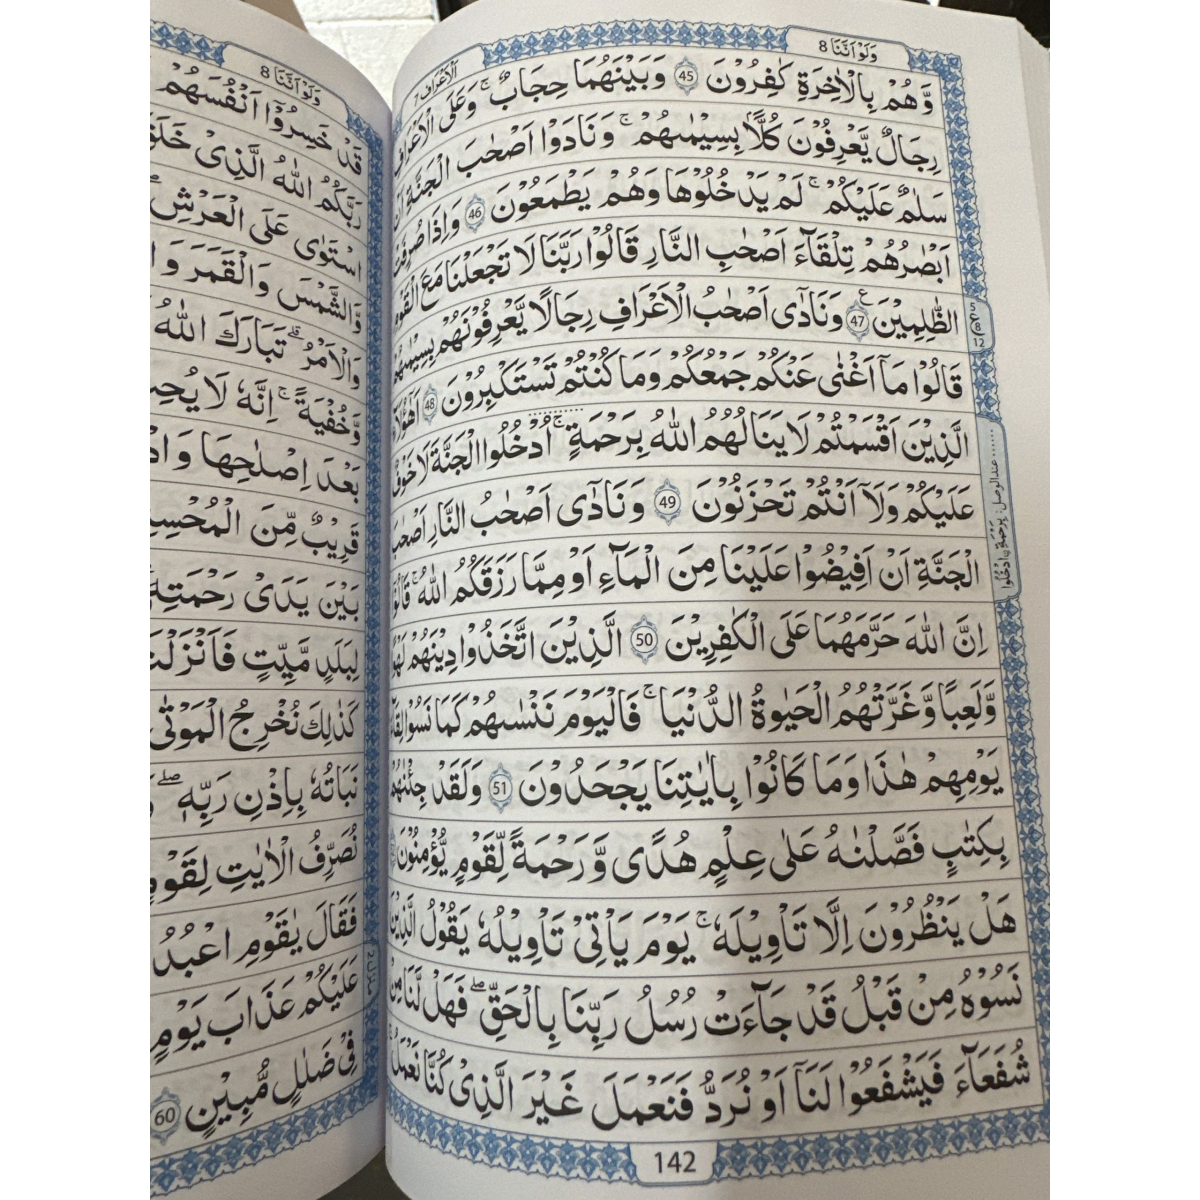 وَلَوْ اَنَّنَا 8
اَلْاَعْرَاف 7
وَهُمْ بِالْاٰخِرَةِ كٰفِرُوْنَ 45 وَبَيْنَهُمَا حِجَابٌ ۚ وَعَلَى الْاَعْرَافِ
رِجَالٌ يَّعْرِفُوْنَ كُلًّاۢ بِسِيْمٰىهُمْ ۚ وَنَادَوْا اَصْحٰبَ الْجَنَّةِ اَنْ
سَلٰمٌ عَلَيْكُمْ ۚ لَمْ يَدْخُلُوْهَا وَهُمْ يَطْمَعُوْنَ 46 وَاِذَا صُرِفَتْ
اَبْصَارُهُمْ تِلْقَآءَ اَصْحٰبِ النَّارِ قَالُوْا رَبَّنَا لَا تَجْعَلْنَا مَعَ الْقَوْمِ
الظّٰلِمِيْنَ 47 ع وَنَادٰٓى اَصْحٰبُ الْاَعْرَافِ رِجَالًا يَّعْرِفُوْنَهُمْ بِسِيْمٰىهُمْ
5 ع 8 12
قَالُوْا مَآ اَغْنٰى عَنْكُمْ جَمْعُكُمْ وَمَا كُنْتُمْ تَسْتَكْبِرُوْنَ 48 اَهٰٓؤُلَآءِ
الَّذِيْنَ اَقْسَمْتُمْ لَا يَنَالُهُمُ اللّٰهُ بِرَحْمَةٍ ۚ اُدْخُلُوا الْجَنَّةَ لَا خَوْفٌ
عَلَيْكُمْ وَلَآ اَنْتُمْ تَحْزَنُوْنَ 49 وَنَادٰٓى اَصْحٰبُ النَّارِ اَصْحٰبَ
الْجَنَّةِ اَنْ اَفِيْضُوْا عَلَيْنَا مِنَ الْمَآءِ اَوْ مِمَّا رَزَقَكُمُ اللّٰهُ ۚ قَالُوْٓا
اِنَّ اللّٰهَ حَرَّمَهُمَا عَلَى الْكٰفِرِيْنَ 50 الَّذِيْنَ اتَّخَذُوْا دِيْنَهُمْ لَهْوًا
وَّلَعِبًا وَّغَرَّتْهُمُ الْحَيٰوةُ الدُّنْيَا ۚ فَالْيَوْمَ نَنْسٰىهُمْ كَمَا نَسُوْا لِقَآءَ
يَوْمِهِمْ هٰذَا وَمَا كَانُوْا بِاٰيٰتِنَا يَجْحَدُوْنَ 51 وَلَقَدْ جِئْنٰهُمْ
بِكِتٰبٍ فَصَّلْنٰهُ عَلٰى عِلْمٍ هُدًى وَّرَحْمَةً لِّقَوْمٍ يُّؤْمِنُوْنَ
هَلْ يَنْظُرُوْنَ اِلَّا تَاْوِيْلَهٗ ۚ يَوْمَ يَاْتِيْ تَاْوِيْلُهٗ يَقُوْلُ الَّذِيْنَ
نَسُوْهُ مِنْ قَبْلُ قَدْ جَآءَتْ رُسُلُ رَبِّنَا بِالْحَقِّ ۖ فَهَلْ لَّنَا مِنْ
شُفَعَآءَ فَيَشْفَعُوْا لَنَآ اَوْ نُرَدُّ فَنَعْمَلَ غَيْرَ الَّذِيْ كُنَّا نَعْمَلُ
142
وَلَوْ اَنَّنَا 8
قَدْ خَسِرُوْٓا اَنْفُسَهُمْ
رَبَّكُمُ اللّٰهُ الَّذِيْ
اسْتَوٰى عَلَى الْعَرْشِ
وَّالشَّمْسَ وَالْقَمَرَ
وَالْاَمْرُ ۗ تَبَارَكَ اللّٰهُ
وَّخُفْيَةً ۚ اِنَّهٗ لَا
بَعْدَ اِصْلَاحِهَا
قَرِيْبٌ مِّنَ
بَيْنَ يَدَيْ رَحْمَتِهٖ
لِبَلَدٍ مَّيِّتٍ
كَذٰلِكَ نُخْرِجُ الْمَوْتٰى
نَبَاتُهٗ بِاِذْنِ رَبِّهٖ ۖ
نُصَرِّفُ الْاٰيٰتِ لِقَوْمٍ
فَقَالَ يٰقَوْمِ
عَلَيْكُمْ عَذَابَ يَوْمٍ
فِيْ ضَلٰلٍ مُّبِيْنٍ 60
منزل 2